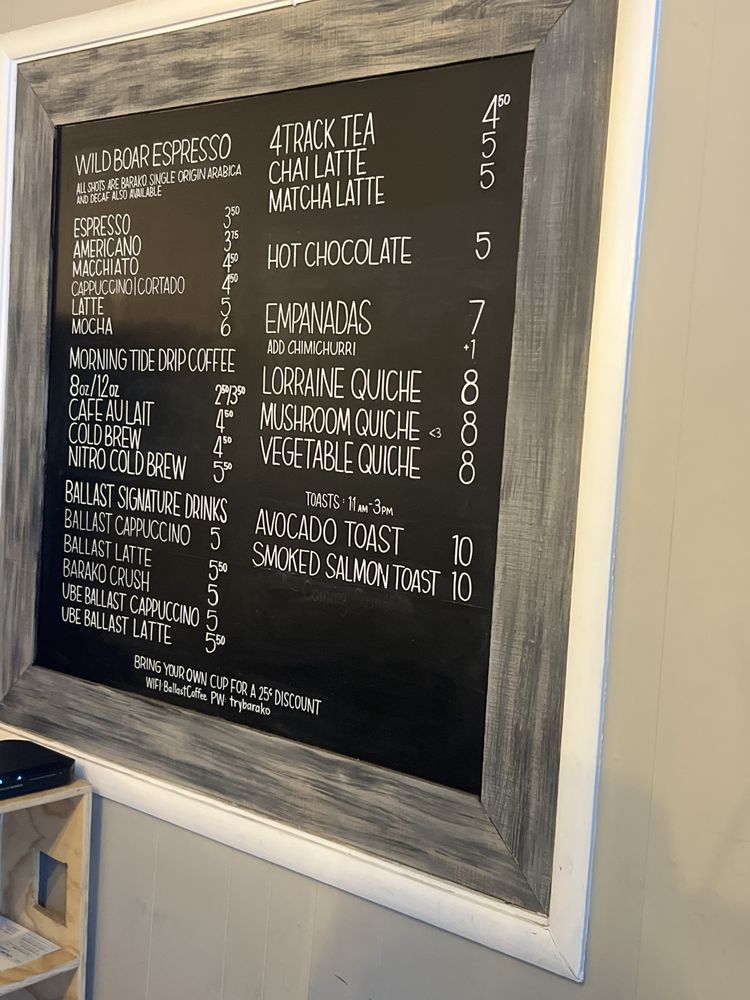 WILD BOAR ESPRESSO
ALL SHOTS ARE BARAKO SINGLE ORIGIN ARABICA
AND DECAF ALSO AVAILABLE
ESPRESSO 3⁵⁰
AMERICANO 3⁷⁵
MACCHIATO 4⁵⁰
CAPPUCCINO|CORTADO 4⁵⁰
LATTE 5
MOCHA 6
MORNING TIDE DRIP COFFEE
8oz/12oz 2⁵⁰/3⁵⁰
CAFE AU LAIT 4⁵⁰
COLD BREW 4⁵⁰
NITRO COLD BREW 5⁵⁰
BALLAST SIGNATURE DRINKS
BALLAST CAPPUCCINO 5
BALLAST LATTE 5⁵⁰
BARAKO CRUSH 5
UBE BALLAST CAPPUCCINO 5
UBE BALLAST LATTE 5⁵⁰
4TRACK TEA 4⁵⁰
CHAI LATTE 5
MATCHA LATTE 5
HOT CHOCOLATE 5
EMPANADAS 7
ADD CHIMICHURRI +1
LORRAINE QUICHE 8
MUSHROOM QUICHE <3 8
VEGETABLE QUICHE 8
TOASTS: 11AM-3PM
AVOCADO TOAST 10
SMOKED SALMON TOAST 10
Coming
BRING YOUR OWN CUP FOR A 25¢ DISCOUNT
WIFI: BallastCoffee PW: trybarako